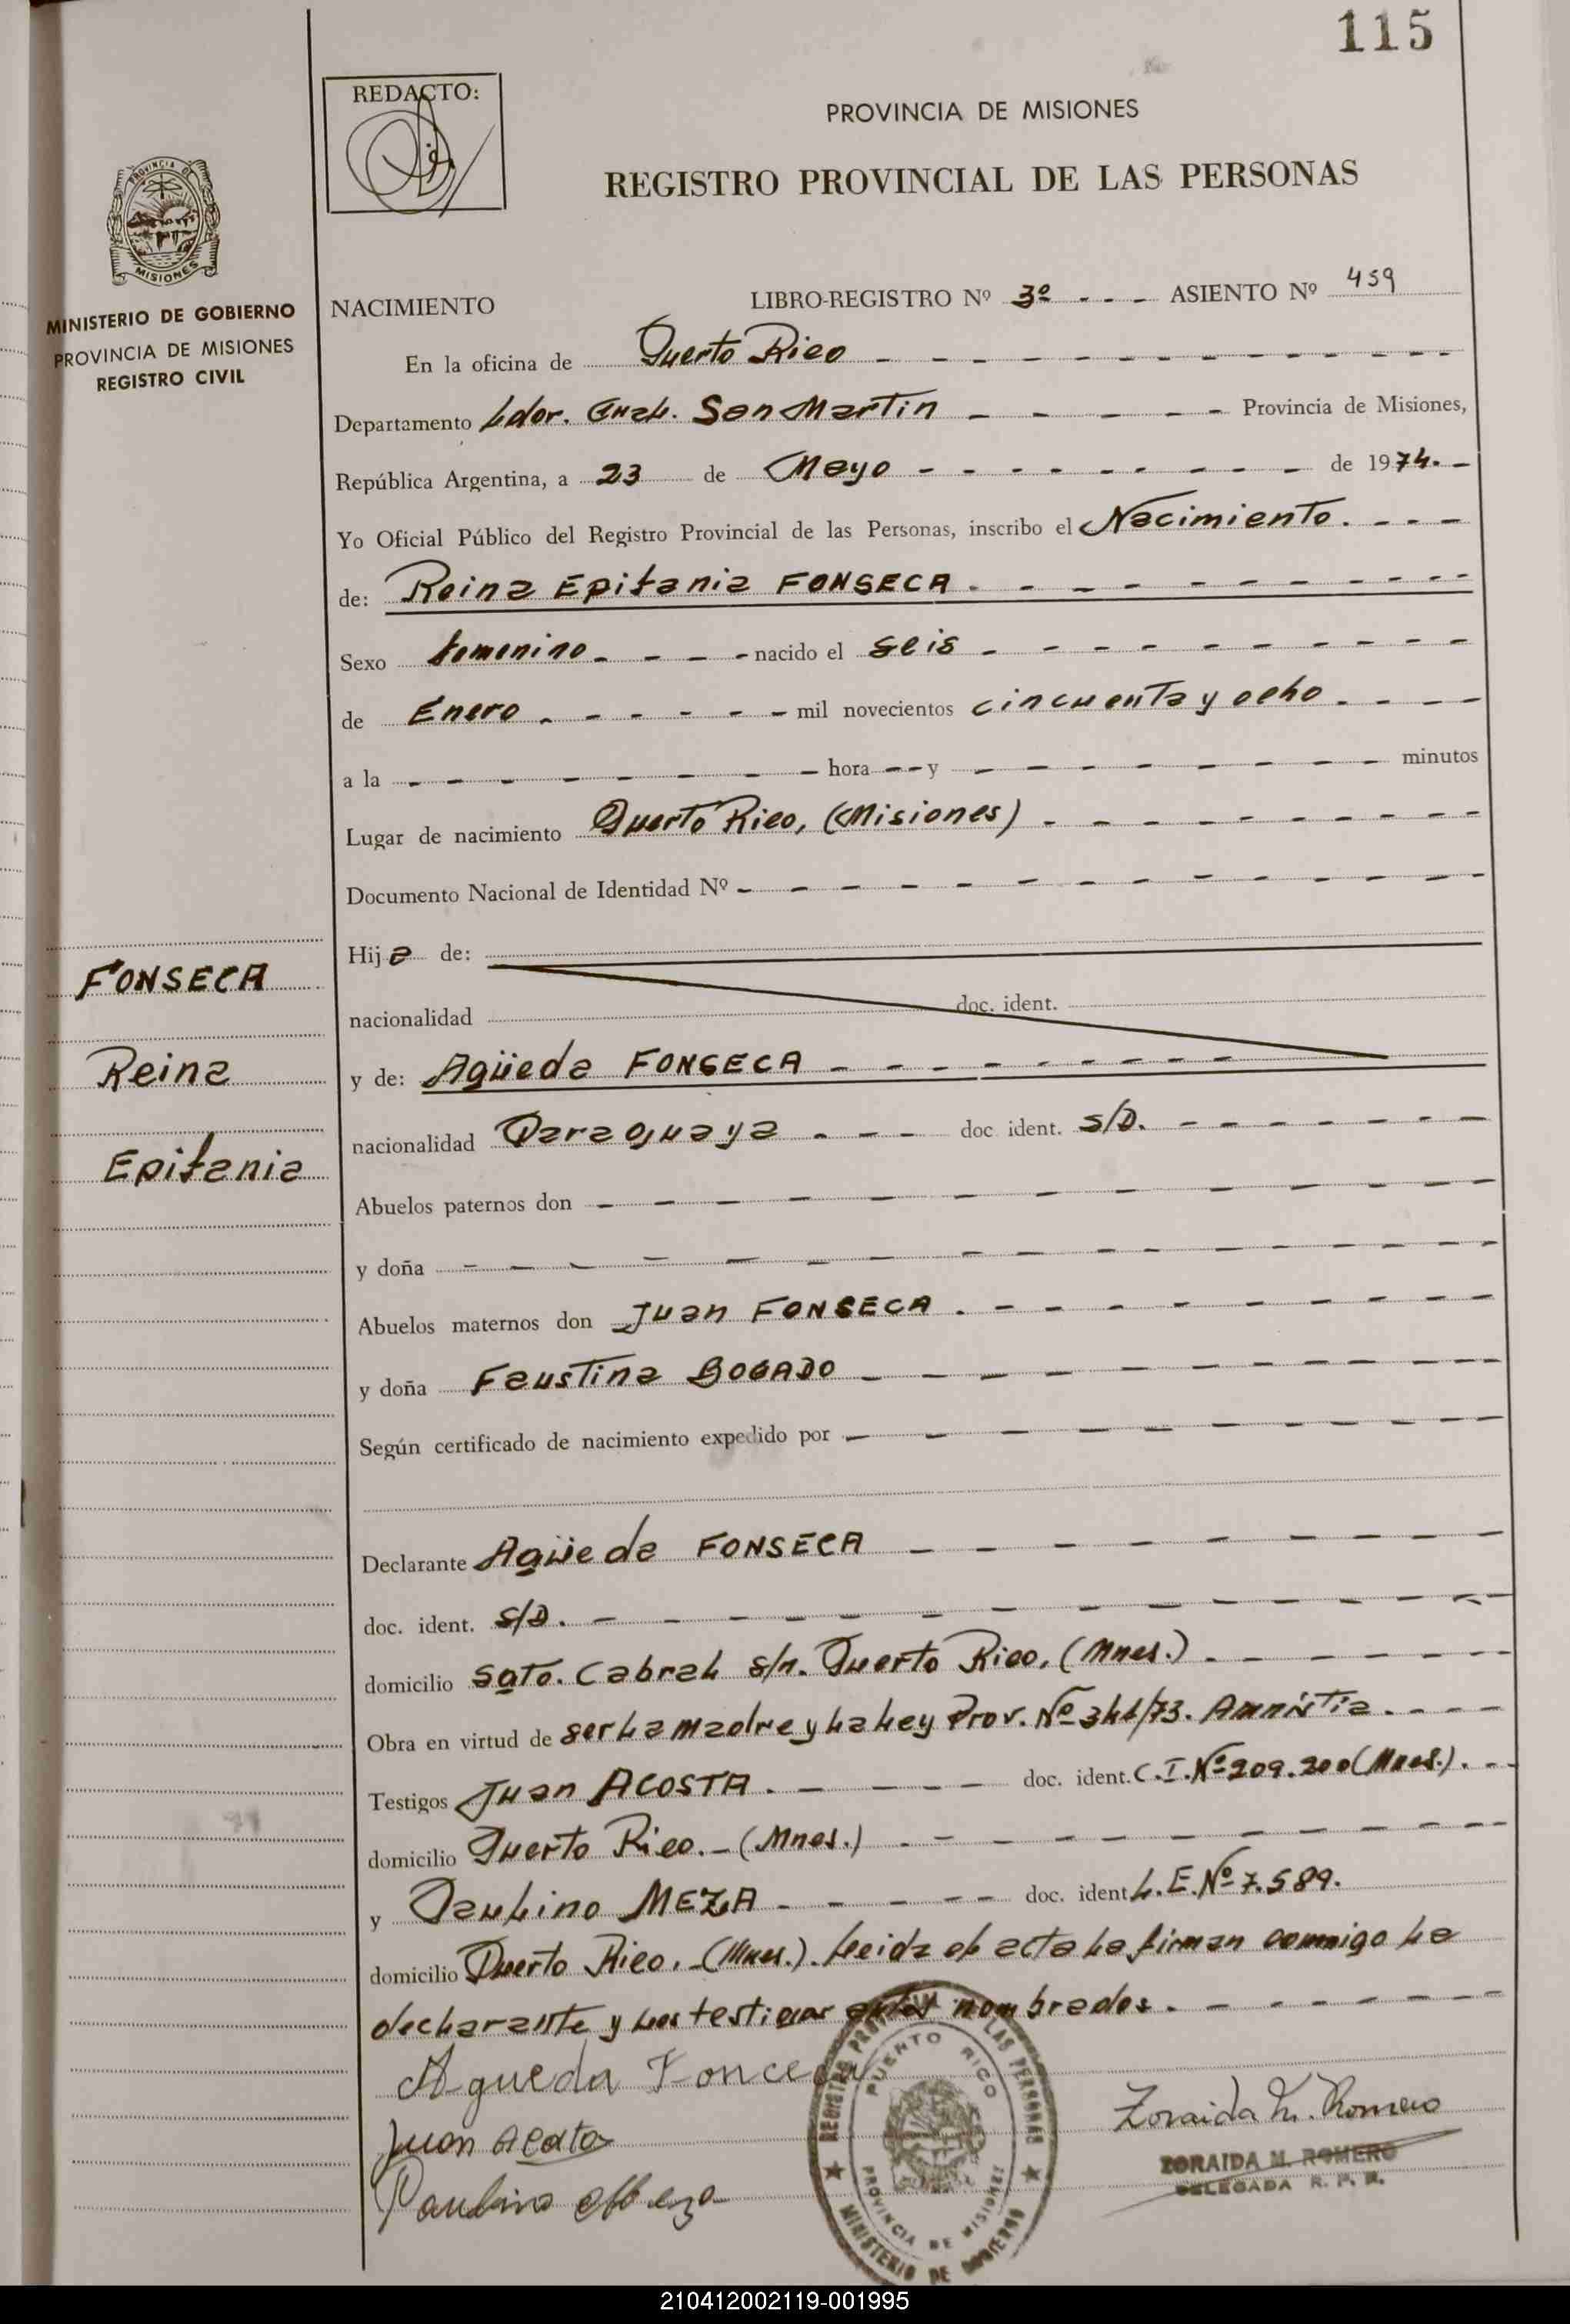 115
REDACTO:
PROVINCIA DE MISIONES
REGISTRO PROVINCIAL DE LAS PERSONAS
PROVINCIA DE
MISIONES
MINISTERIO DE GOBIERNO
PROVINCIA DE MISIONES
REGISTRO CIVIL
NACIMIENTO LIBRO-REGISTRO Nº 3º - - - ASIENTO Nº 459
En la oficina de Puerto Rico
Departamento Ldor. Gral. San Martin - - - - - Provincia de Misiones,
República Argentina, a 23 de Mayo - - - - - - - - de 1974. -
Yo Oficial Público del Registro Provincial de las Personas, inscribo el Nacimiento. - - -
de: Reina Epifania FONSECA. - - - - - - - - -
Sexo femenino. - - - - nacido el seis - - - - - - - - -
de Enero. - - - - - - mil novecientos cincuenta y ocho. - - - -
a la - - - - - - - - hora - - y - - - - - - - - minutos
Lugar de nacimiento Puerto Rico, (Misiones) - - - - - - - - -
Documento Nacional de Identidad Nº - - - - - - - - - - - - -
Hija de:
nacionalidad doc. ident.
y de: Agüeda FONSECA - - - - - - - -
nacionalidad Paraguaya - - - doc ident. S/D. - - - - - - -
Abuelos paternos don - - - - - - - - - - -
y doña - - - - - - - - - - - - - -
Abuelos maternos don Juan FONSECA. - - - - - - - - -
y doña Faustina BOGADO - - - - - - - - - -
Según certificado de nacimiento expedido por - - - - - - - - -
Declarante Agüeda FONSECA - - - - - - - -
doc. ident. S/D. - - - - - - - - - - - -
domicilio Sgto. Cabral s/n. Puerto Rico, (Mnes.). - - - - -
Obra en virtud de ser la madre y la Ley Prov. Nº /73. Amnistia. - - - -
Testigos Juan ACOSTA. - - - - - doc. ident. C.I. Nº 209.200 (Mnes.). - -
domicilio Puerto Rico. - (Mnes.) - - - - - - - - - -
y Paulino MEZA - - - - - - doc. ident L.E. Nº 7.589.
domicilio Puerto Rico. - (Mnes.). Leida el acta la firman conmigo la
declarante y los testigos antes nombrados. - - - - - - -
Agueda Fonceca
Juan Acosta
Paulino Meza
Zoraida M. Romero
ZORAIDA M. ROMERO
DELEGADA R. P. P.
REGISTRO PROVINCIAL DE LAS PERSONAS
PUERTO RICO
PROVINCIA DE MISIONES
MINISTERIO DE GOBIERNO
FONSECA
Reina
Epifania
210412002119-001995